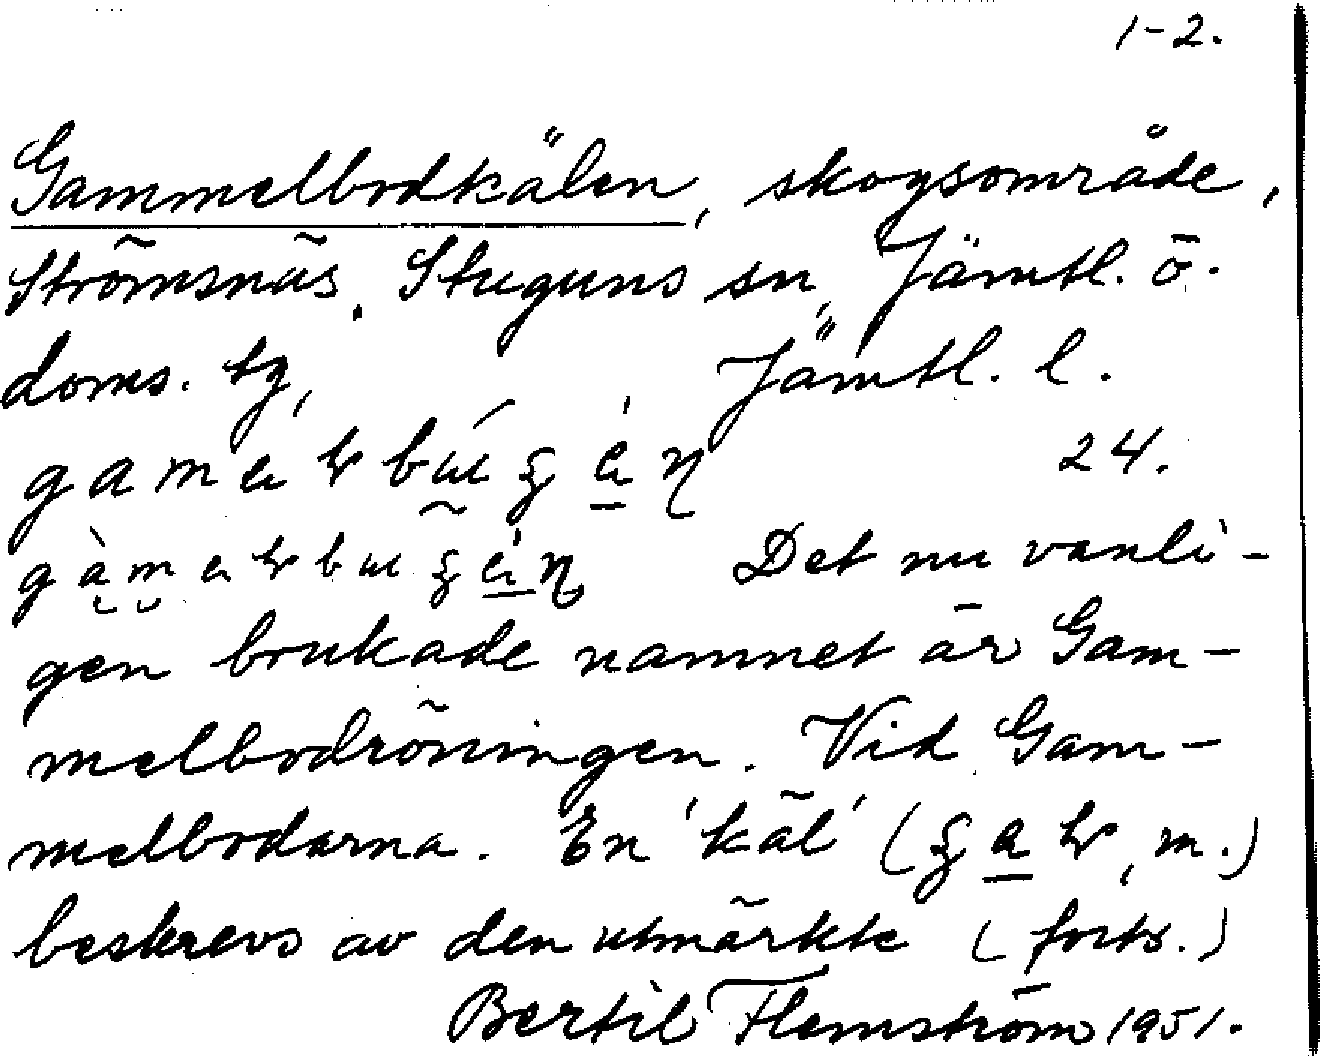 1-2.
Gammelbodkälen, skogsområde,
Strömsnäs, Stuguns sn, Jämtl. ö.
doms. tg, Jämtl. l.
24.
Det nu vanli-
gen brukade namnet är Gam-
melbodröningen. Vid Gam-
melbodarna. En 'käl' ( , m.)
beskrevs av den utmärkte (forts.)
Bertil Flemström 1951.